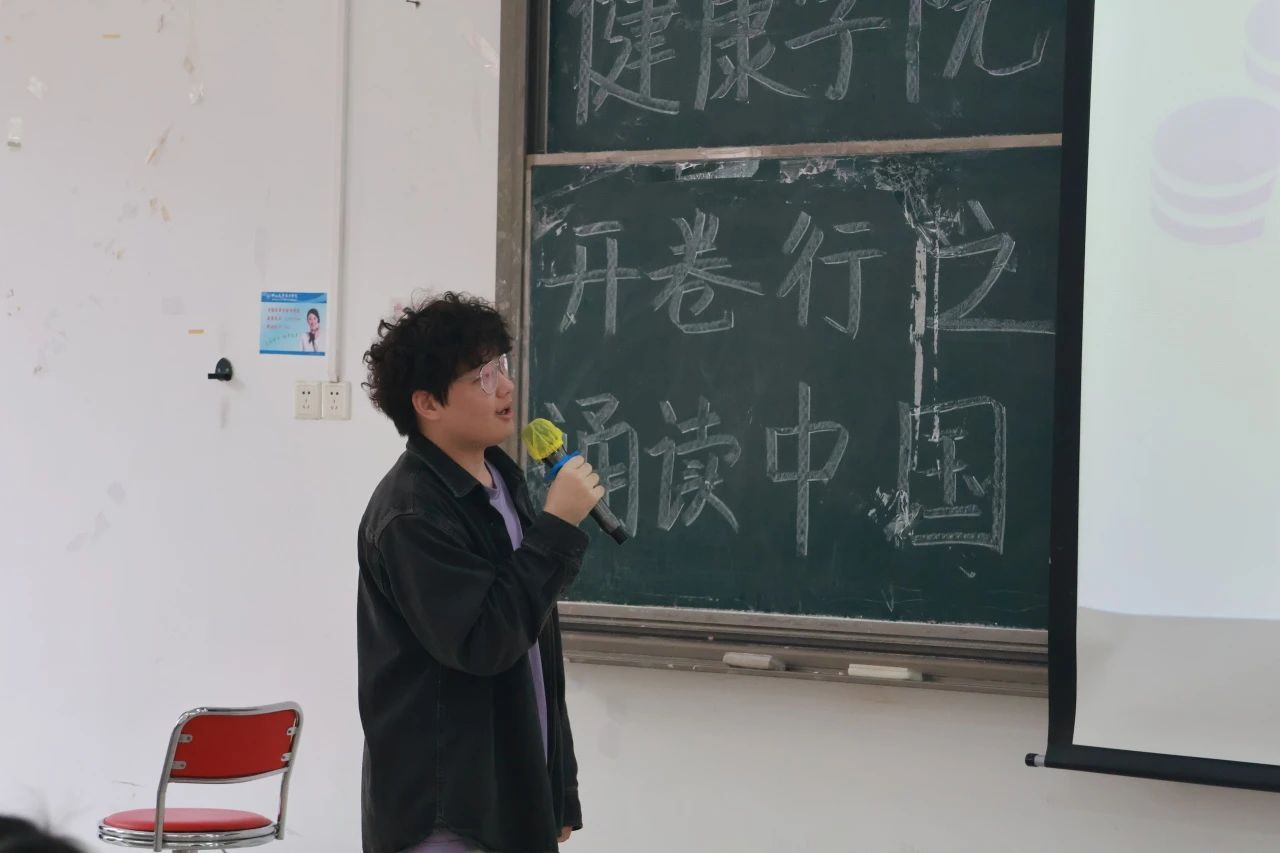 健康学院
开卷行之
诵读中国